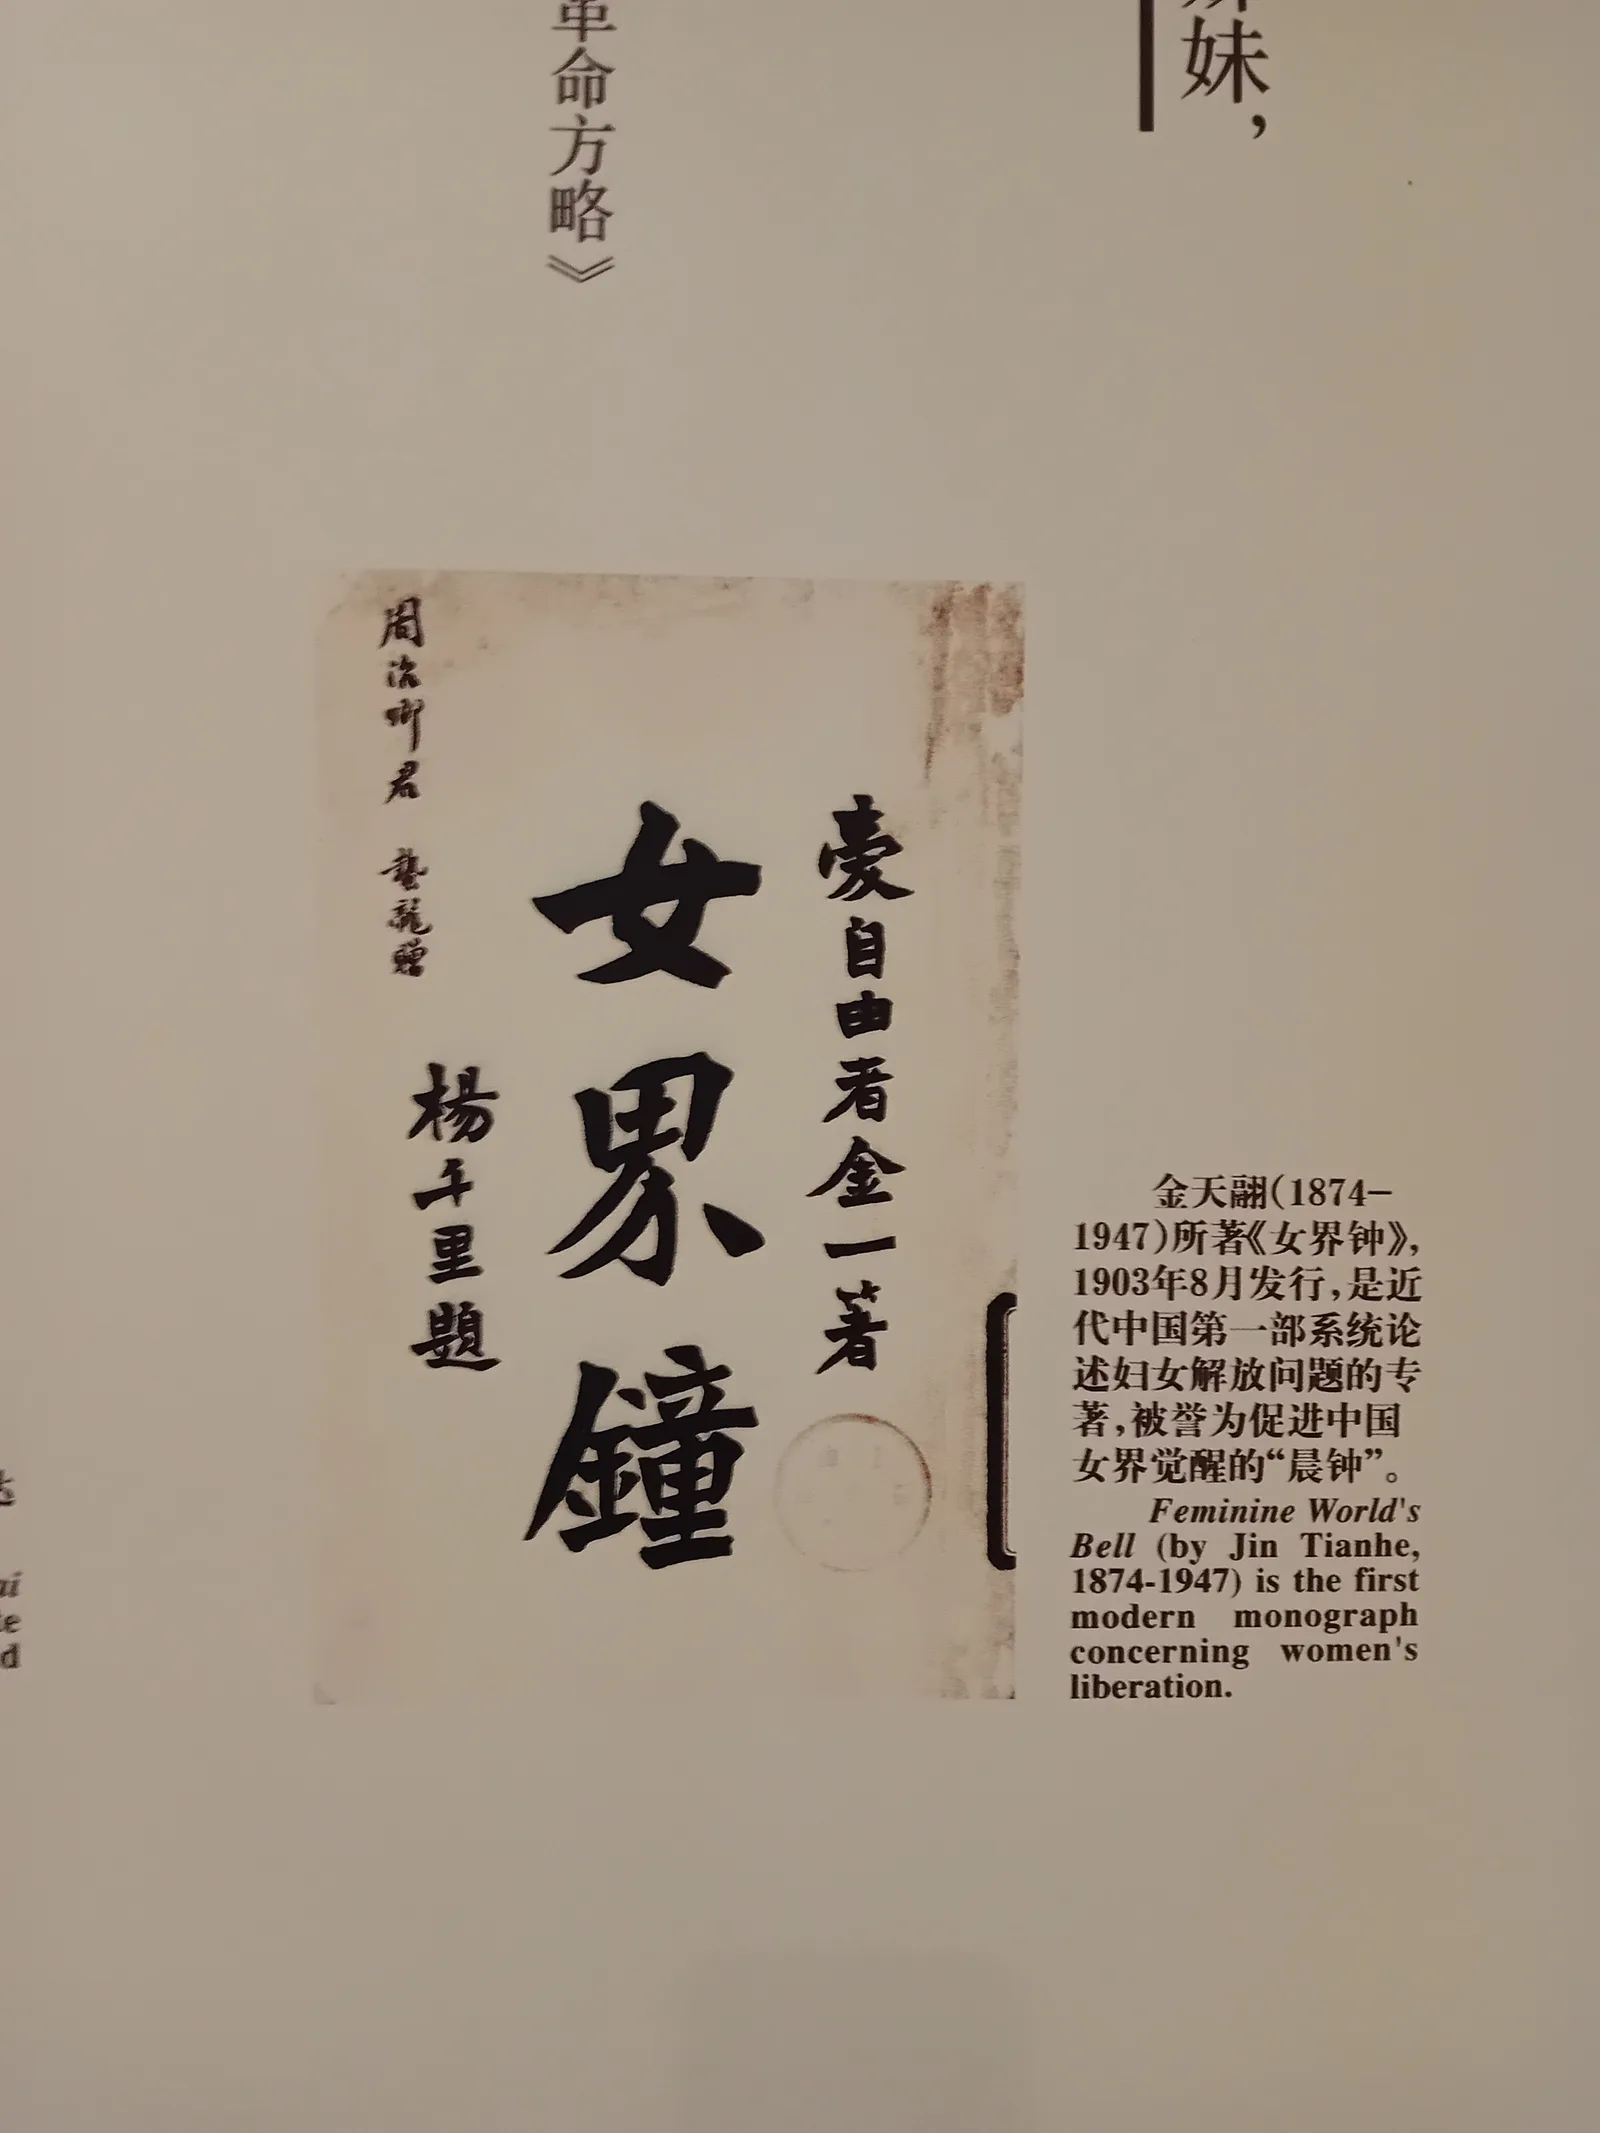 妹，
革命方略》
愛自由者金一著
女界鐘
楊千里題
周
君
贈
金天翮（1874–
1947）所著《女界钟》，
1903年8月发行，是近
代中国第一部系统论
述妇女解放问题的专
著，被誉为促进中国
女界觉醒的“晨钟”。
Feminine World's
Bell (by Jin Tianhe,
1874-1947) is the first
modern monograph
concerning women's
liberation.